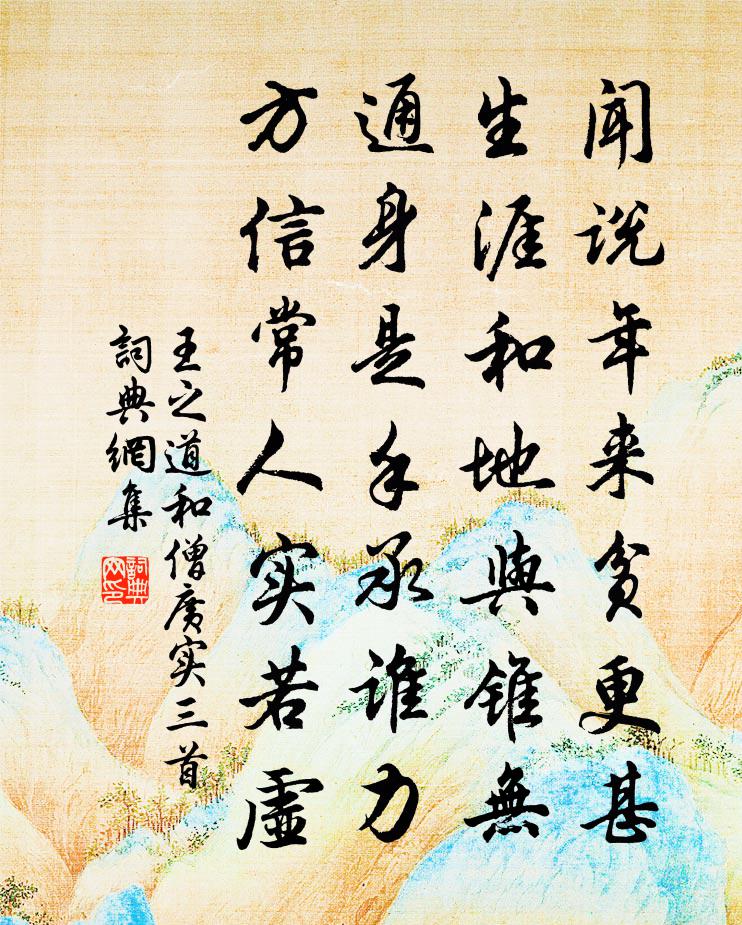 闻说年来贫更甚
生涯和地與锥無
通身是手承谁力
方信常人实若虚
王之道和僧广实三首
詞典網集
詞典网印